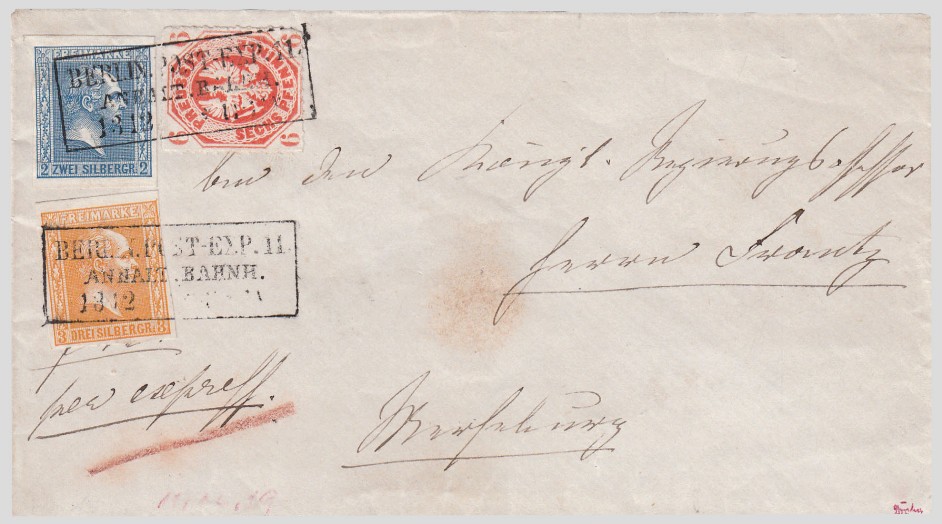 FREIMARKE
ZWEI SILBERGR.
2 2
PREUSSEN
SECHS PFENNIGE
6 6 6
BERLIN.POST-EXP.11.
ANHALT.BAHNH.
13 12
FREIMARKE
DREI SILBERGR.
3 3
BERLIN.POST-EXP.11.
ANHALT.BAHNH.
13 12
den Königl. Regierungsassessor
Herrn Frantz
per express.
Merseburg